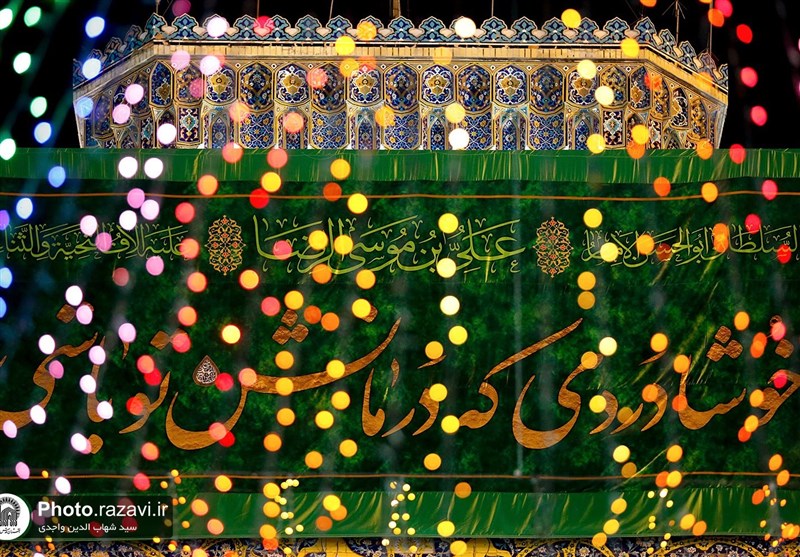 السلطان ابوالحسن الامام علی بن موسی الرضا علیه الاف التحیة والثنا
خوشا دردی که درمانش تو باشی
Photo.razavi.ir
سید شهاب الدین واجدی